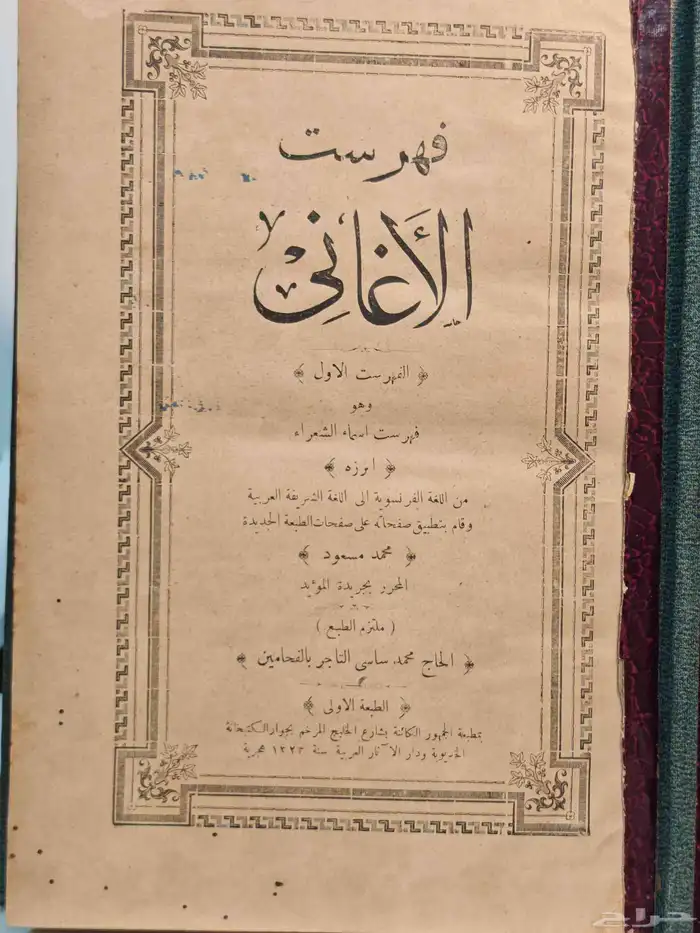 فهرست
الأغاني
﴿ الفهرست الاول ﴾
وهو
فهرست اسماء الشعراء
﴿ ابرزه ﴾
من اللغة الفرنسوية الى اللغة الشريفة العربية
وقام بتطبيق صفحاته على صفحات الطبعة الجديدة
﴿ محمد مسعود ﴾
المحرر بجريدة المؤيد
( ملتزم الطبع )
﴿ الحاج محمد ساسى التاجر بالفحامين ﴾
﴿ الطبعة الاولى ﴾
بمطبعة الجمهور الكائنة بشارع الخليج المرخم بجوار الكتبخانة
الخديوية ودار الآثار العربية سنة ١٣٢٣ هجرية
حراج